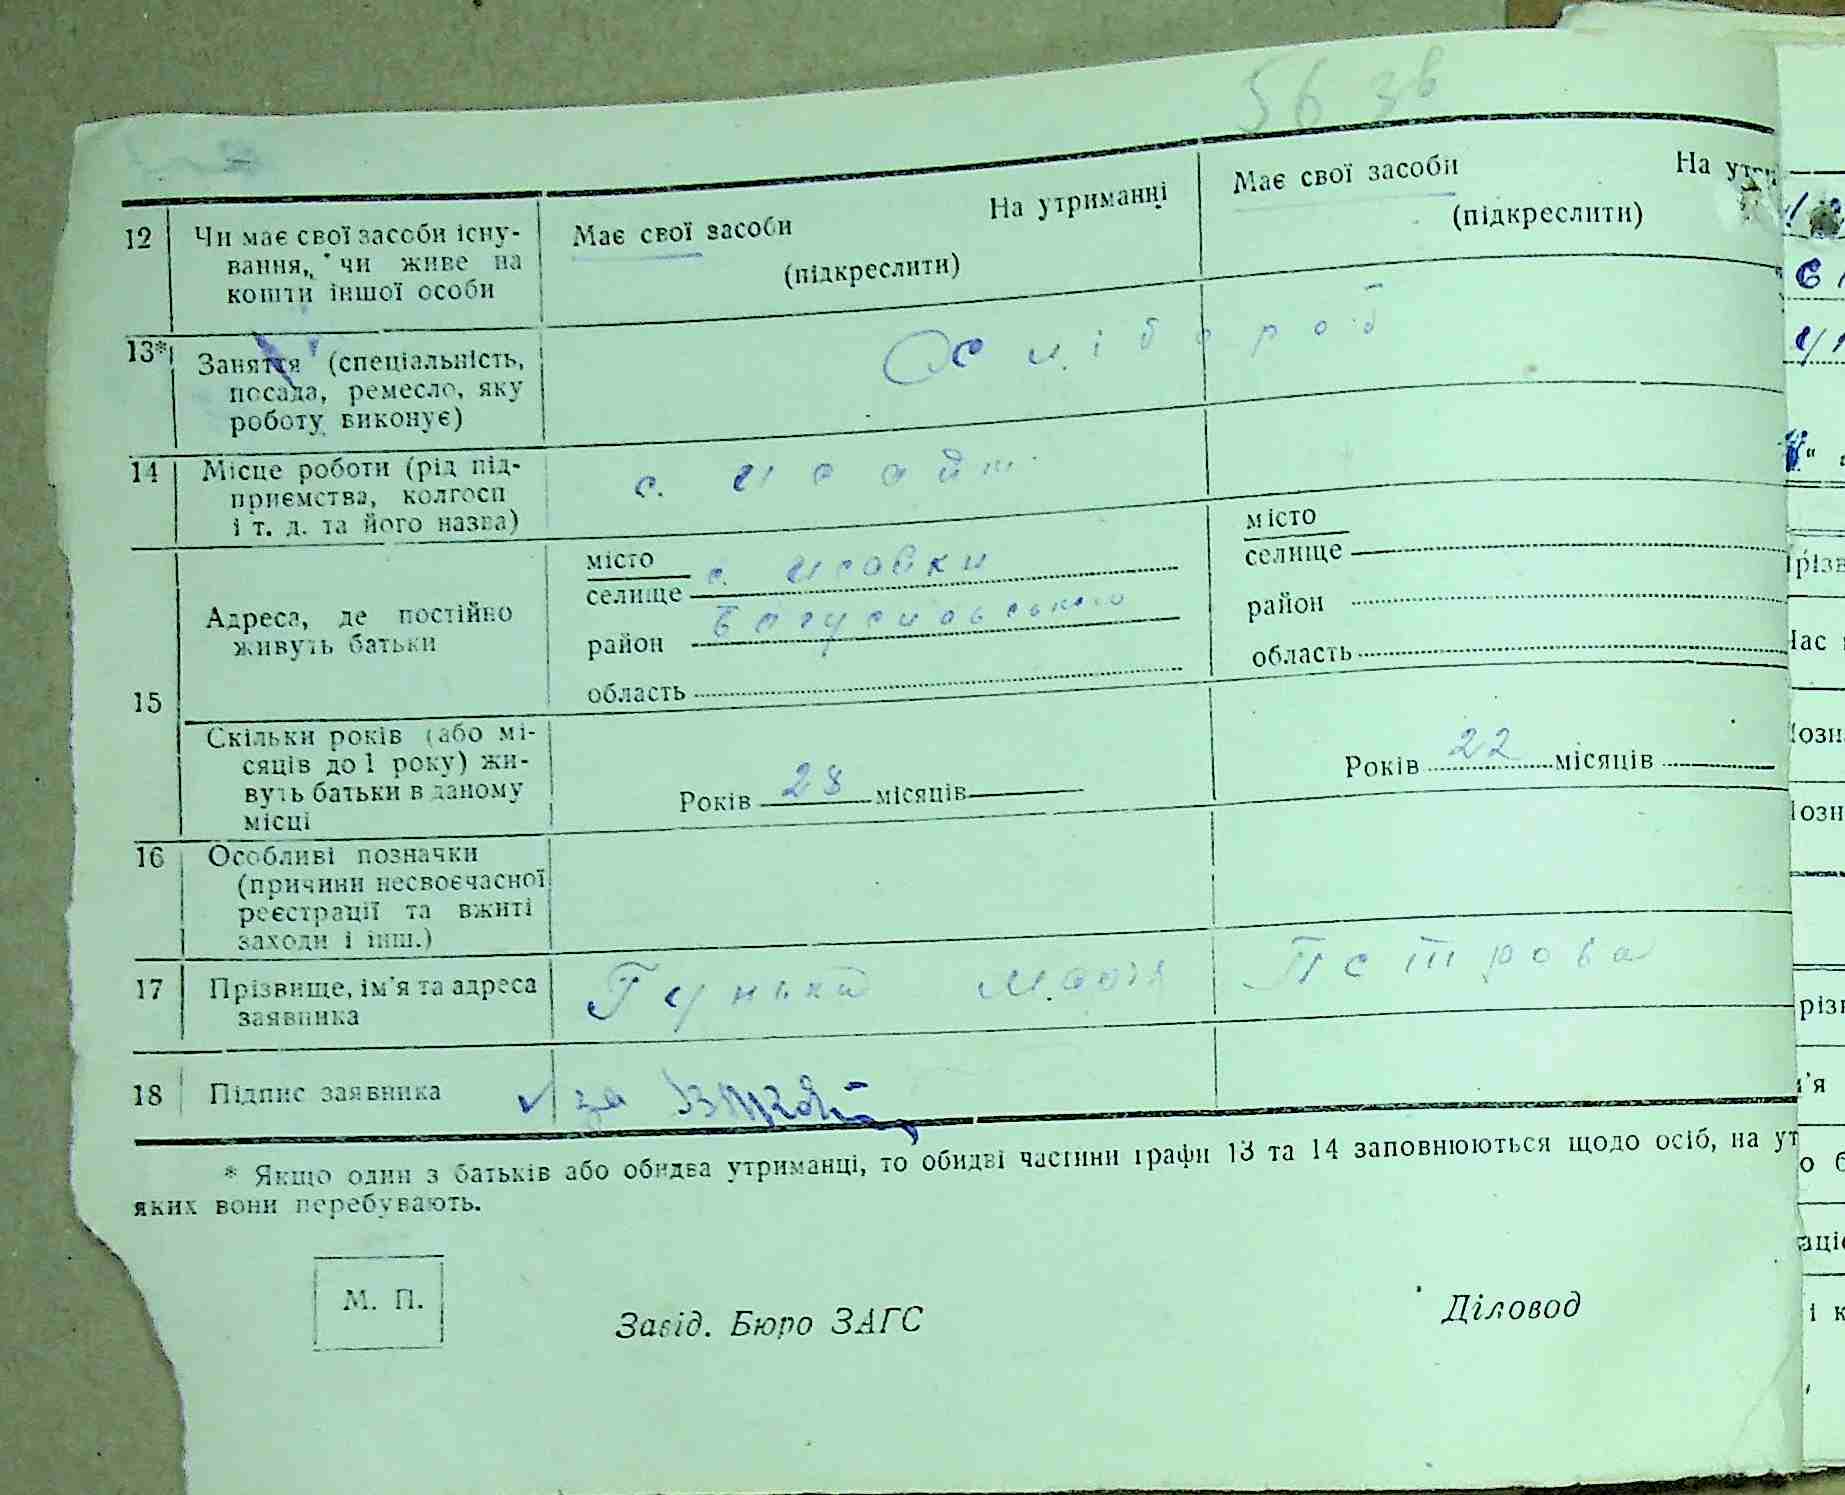 56 зв
12 Чи має свої засоби існу-
вання, чи живе на
кошти іншої особи
Має свої засоби На утриманні
(підкреслити)
Має свої засоби На утри
(підкреслити)
13* Заняття (спеціальність,
посада, ремесло, яку
роботу виконує)
14 Місце роботи (рід під-
приємства, колгосп
і т. д. та його назва)
с.
15 Адреса, де постійно
живуть батьки
місто
селище с. Исайки
район
область
місто
селище
район
область
Скільки років (або мі-
сяців до 1 року) жи-
вуть батьки в даному
місці
Років 28 місяців
Років 22 місяців
16 Особливі позначки
(причини несвоєчасної
реєстрації та вжиті
заходи і інш.)
17 Прізвище, ім'я та адреса
заявника
Гунька Петрова
18 Підпис заявника
за
* Якщо один з батьків або обидва утриманці, то обидві частини графи 13 та 14 заповнюються щодо осіб, на ут
яких вони перебувають.
М. П.
Завід. Бюро ЗАГС
Діловод